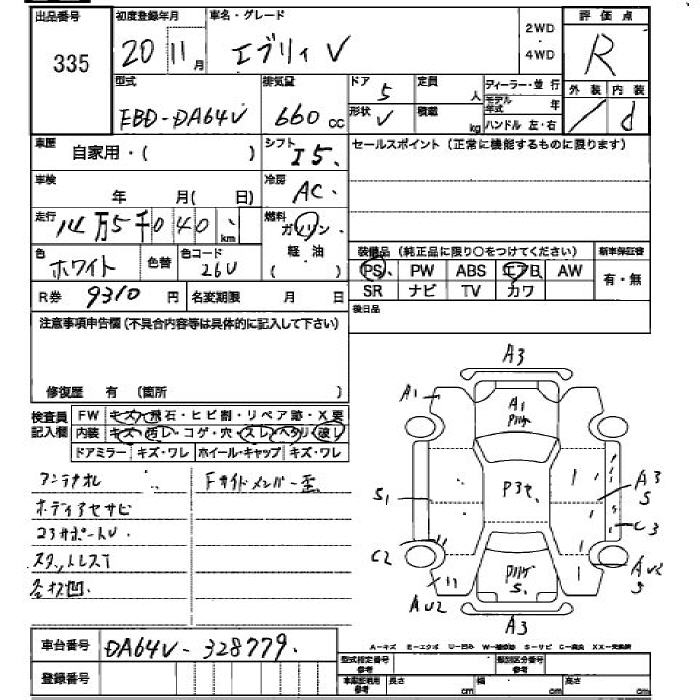 出品番号 初度登録年月 車名・グレード 2WD ・ 4WD 評価点
335 20 11月 エブリィ V R
型式 排気量 ドア 5 定員 人 ディーラー・並行 外装 内装
EBD-DA64V 660cc 形状 V 積載 kg モデル年式 年 ハンドル 左・右 d
車歴 自家用・( ) シフト I5 セールスポイント(正常に機能するものに限ります)
車検 年 月( 日) 冷房 AC
走行 14万5千040 km 燃料 ガソリン 軽油 ( )
色 ホワイト 色替 色コード 26U 装備品(純正品に限り○をつけてください) 新車保証書
PS PW ABS エアB AW 有・無
R券 9310円 名変期限 月 日 SR ナビ TV カワ
注意事項申告欄(不具合内容等は具体的に記入して下さい) 後日品
修復歴 有 (箇所 )
A3
検査員記入欄 FW キズ・飛石・ヒビ割・リペア跡・X要
内装 キズ・汚レ・コゲ・穴・スレ・ヘタリ・破レ
ドアミラー キズ・ワレ ホイール・キャップ キズ・ワレ
A1 A1
アンテナオレ Fサイドメンバー歪
ボディ下セサビ
コアサポートU
スタットレスT
各材凹
S1 A3 S
C3
C2 AU2 S
AU2 S
A3
車台番号 DA64V-328779
A-キズ E-エクボ U-凹み W-補修跡 S-サビ C-腐食 XX-交換済
登録番号
型式指定番号 参考 類別区分番号 参考
車庫証明用 参考 長さ cm 幅 cm 高さ cm